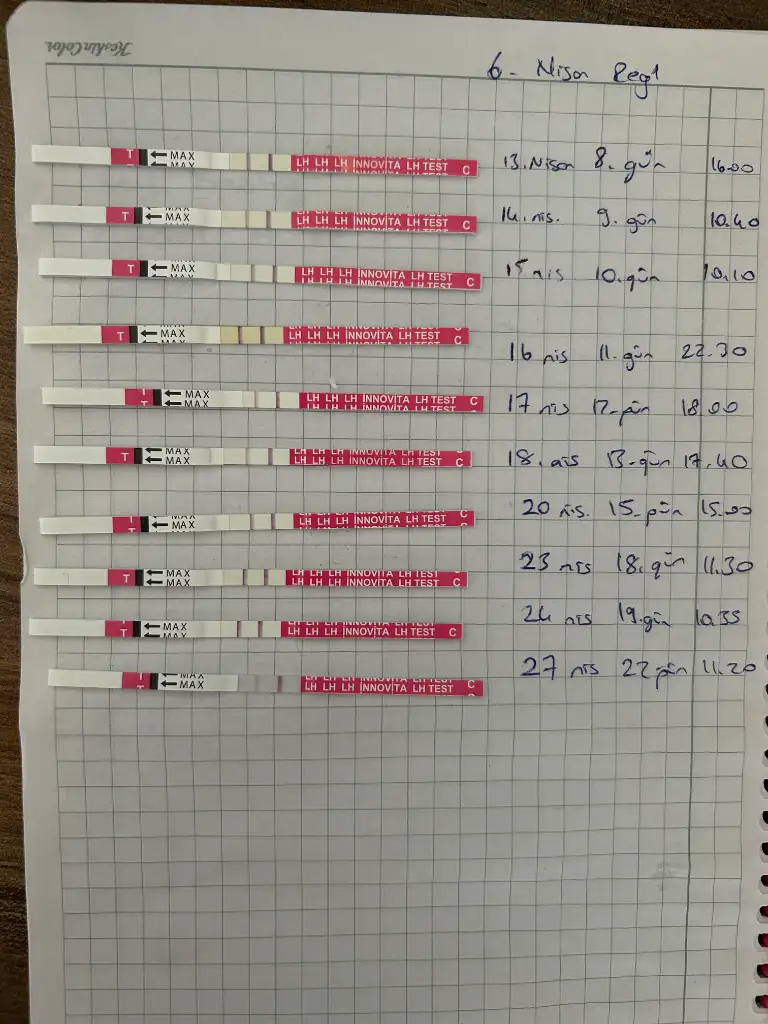 KeskinColor
6 - Nisan Regl
T MAX MAX LH LH LH INNOVITA LH TEST C 13. Nisan 8. gün 16.00
T MAX MAX LH LH LH INNOVITA LH TEST C 14. nis. 9. gün 10.40
T MAX MAX LH LH LH INNOVITA LH TEST C 15 nis 10. gün 10.10
T MAX MAX LH LH LH INNOVITA LH TEST C 16 nis 11. gün 22.30
T MAX MAX LH LH LH INNOVITA LH TEST C 17 nis 12. gün 18.00
T MAX MAX LH LH LH INNOVITA LH TEST C 18. nis 13. gün 17.40
T MAX MAX LH LH LH INNOVITA LH TEST C 20 nis. 15. gün 15.00
T MAX MAX LH LH LH INNOVITA LH TEST C 23 nis 18. gün 11.30
T MAX MAX LH LH LH INNOVITA LH TEST C 24 nis 19. gün 10.55
T MAX MAX LH LH LH INNOVITA LH TEST C 27 nis 22 gün 11.20